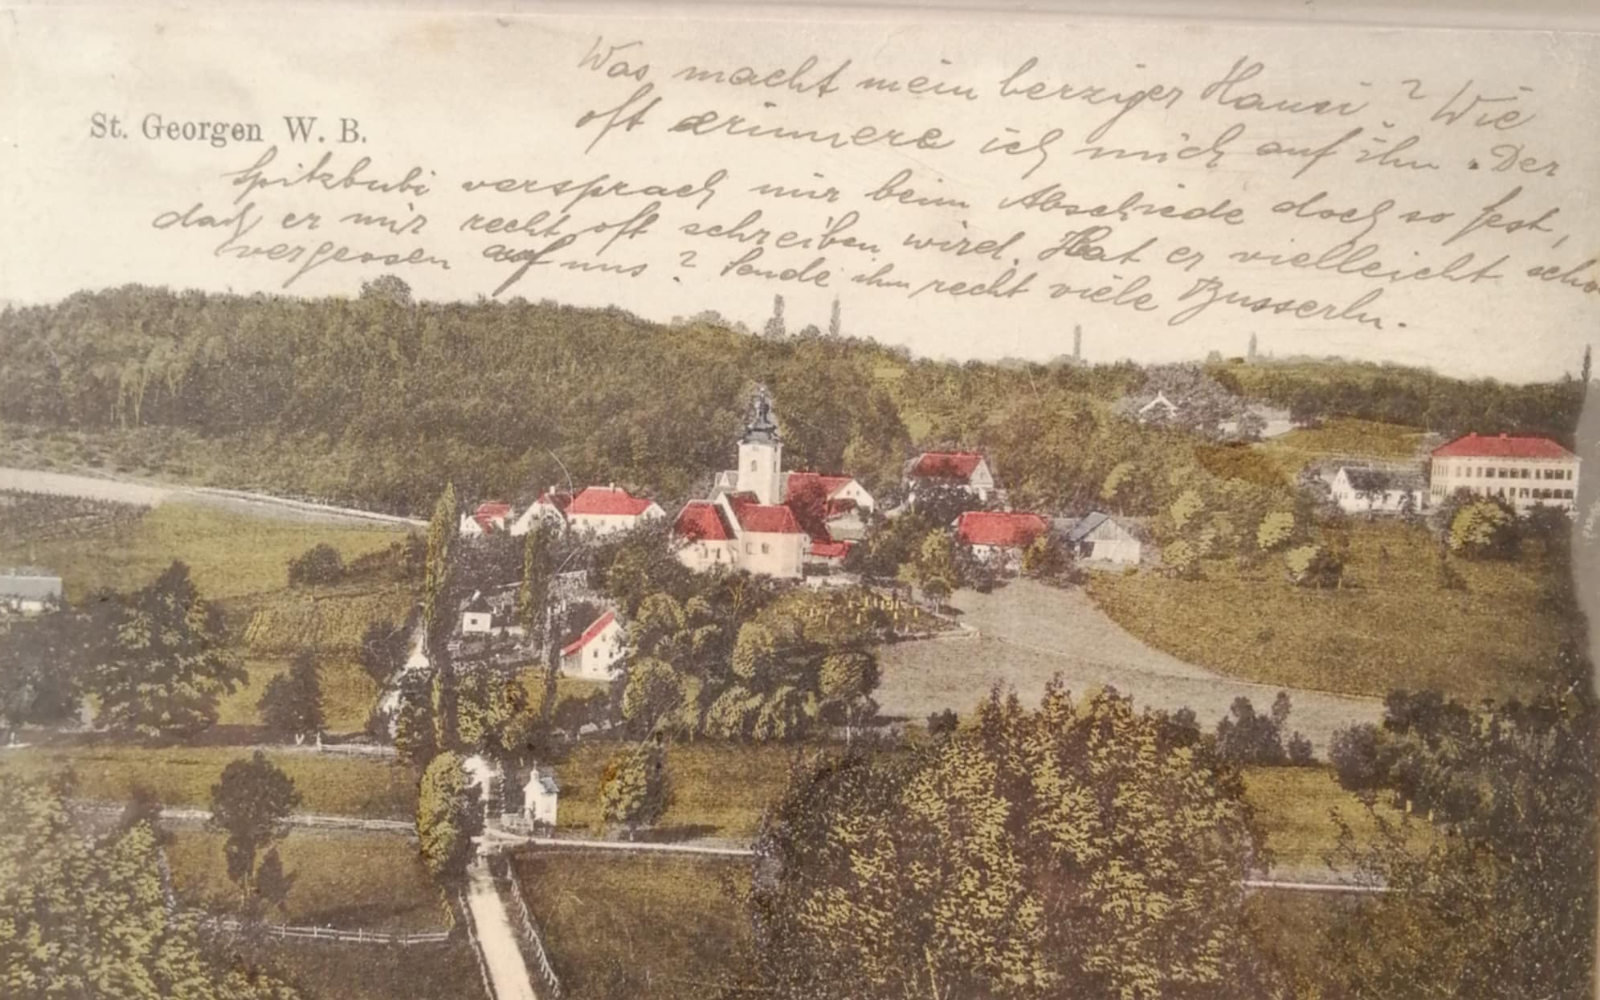 St. Georgen W. B.
Was macht mein herziger Hansi? Wie
oft erinnere ich mich auf ihn. Der
Spitzbubi versprach mir beim Abschiede doch so fest,
daß er mir recht oft schreiben wird. Hat er vielleicht scho
vergessen auf uns? Sende ihm recht viele Busserln.